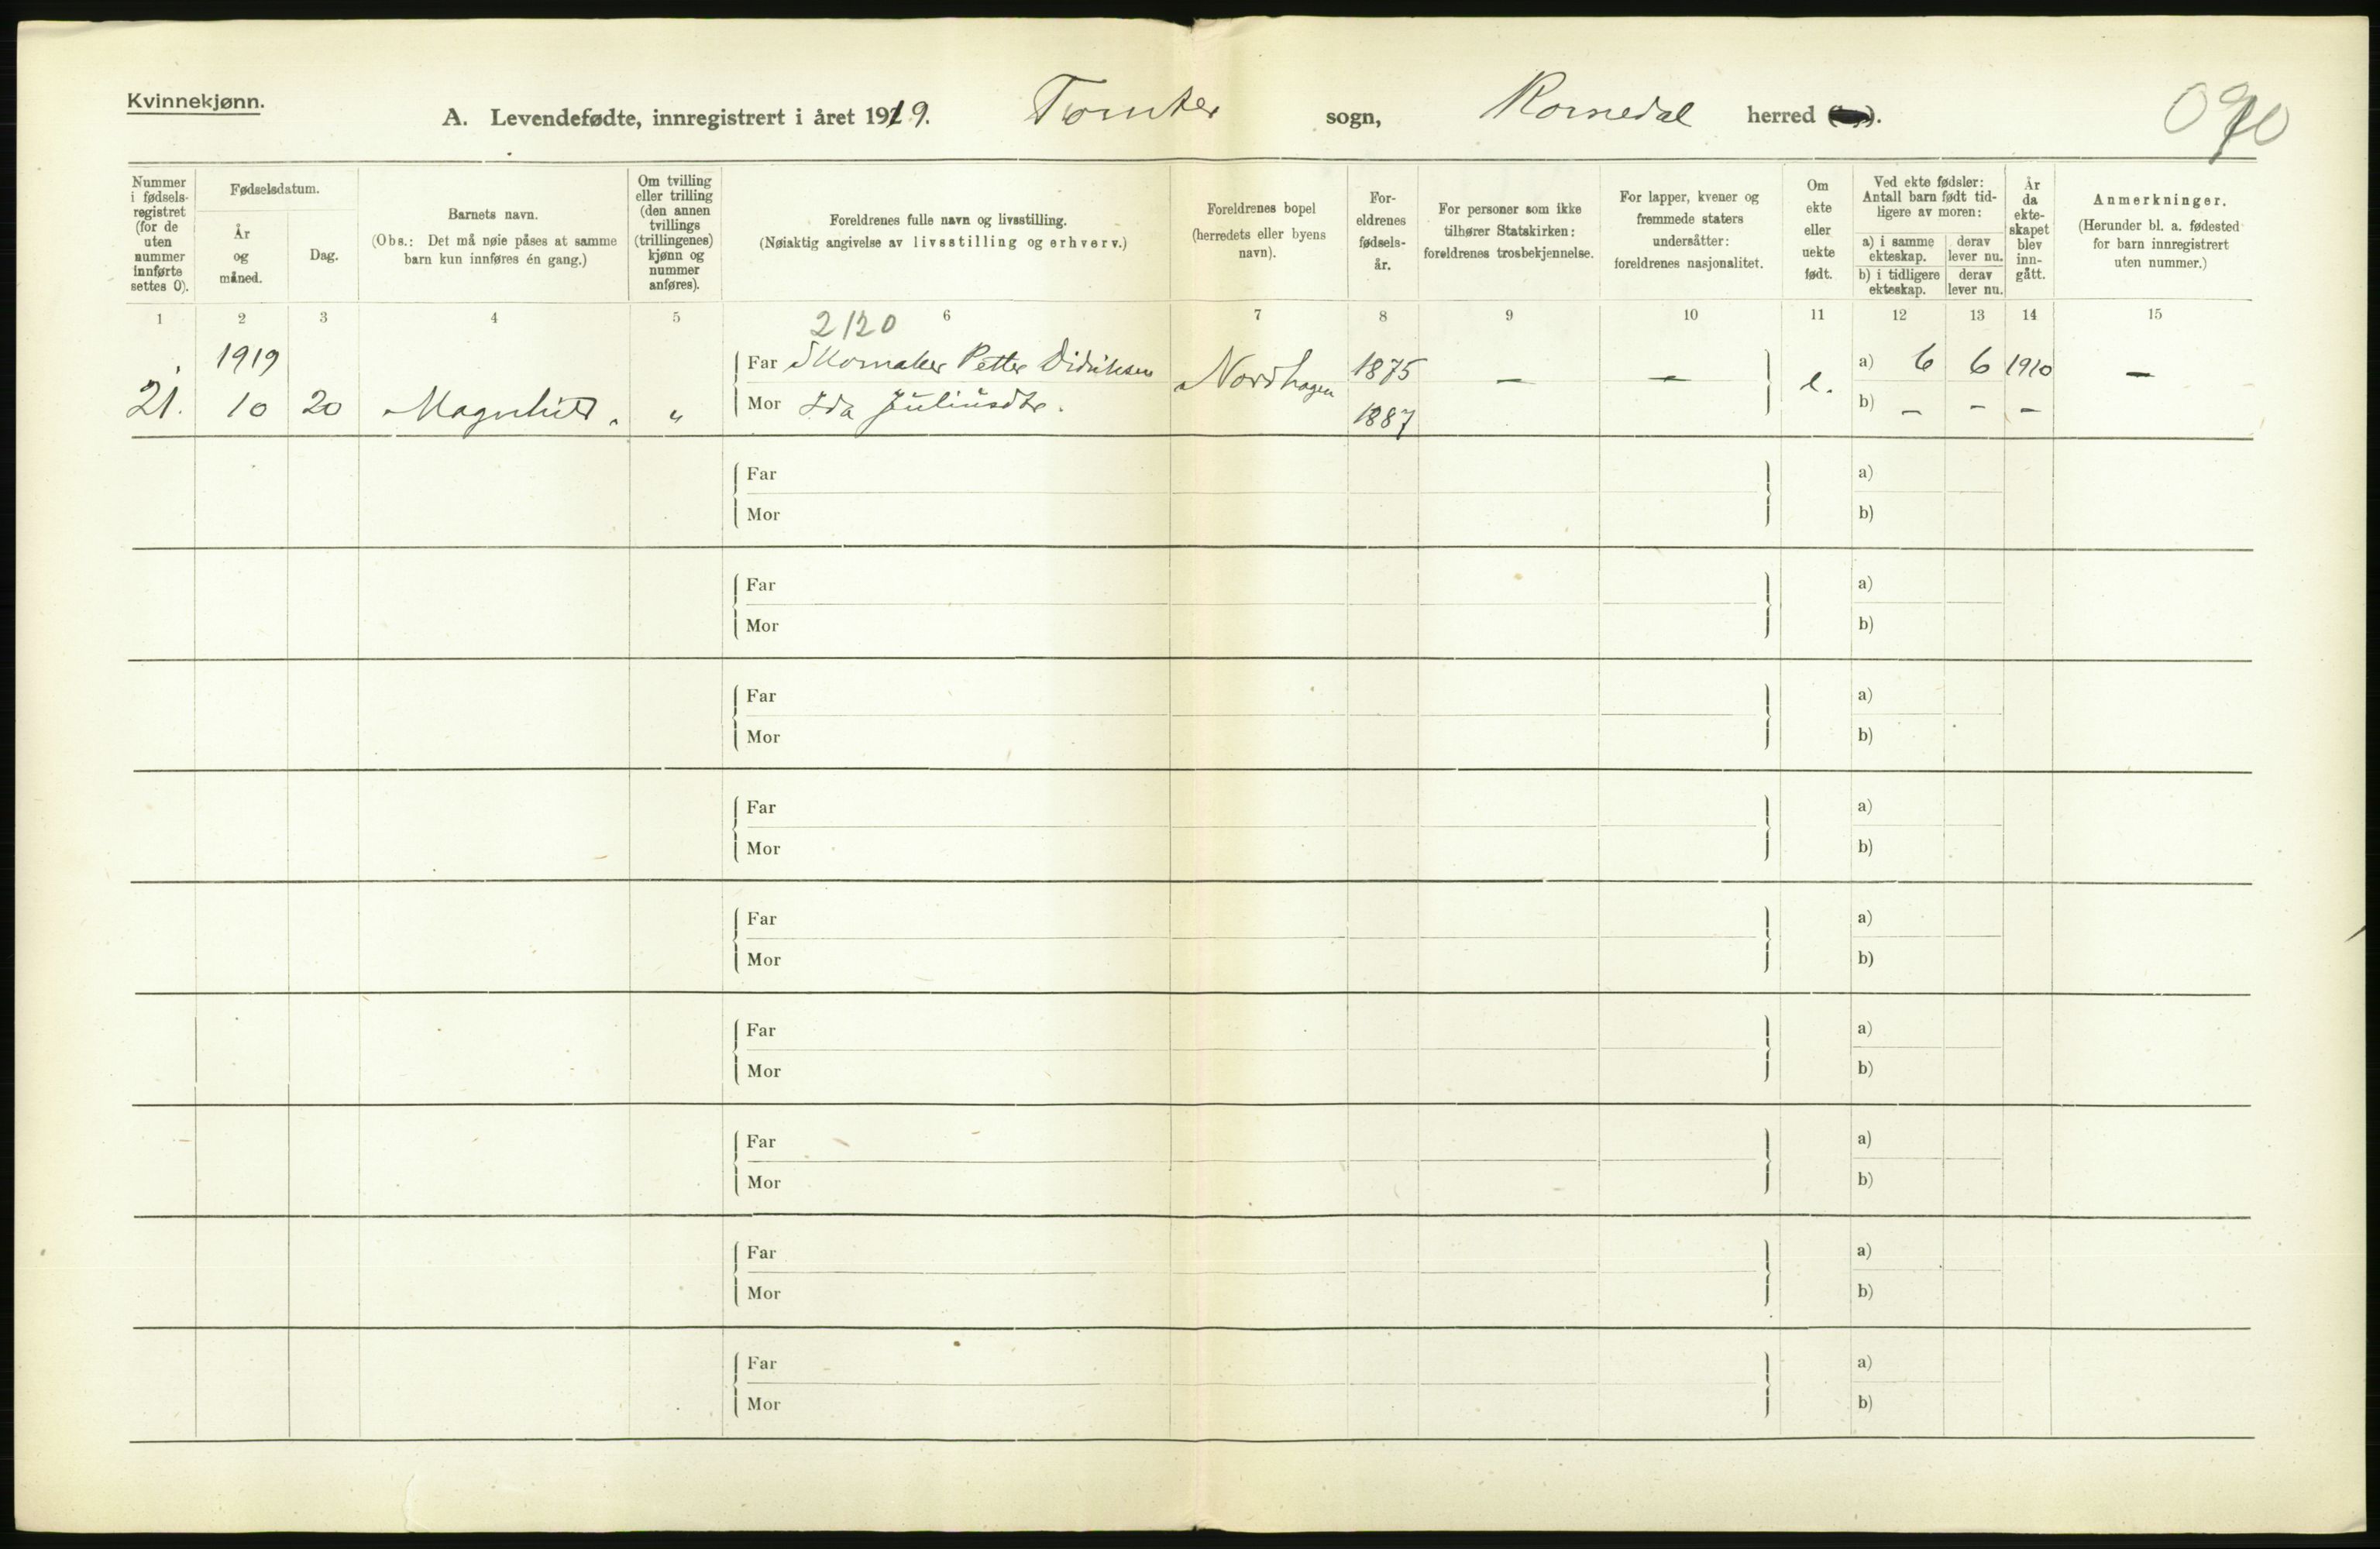 Kvinnekjønn.
A. Levendefødte, innregistrert i året 1919. Tomter sogn, Romedal herred
090
Nummer i fødsels-registret (for de uten nummer innførte settes 0).
Fødselsdatum.
År og måned.
Dag.
Barnets navn.
(Obs.: Det må nøie påses at samme barn kun innføres én gang.)
Om tvilling eller trilling (den annen tvillings (trillingenes) kjønn og nummer anføres).
Foreldrenes fulle navn og livsstilling.
(Nøiaktig angivelse av livsstilling og erhverv.)
Foreldrenes bopel (herredets eller byens navn).
For-eldrenes fødsels-år.
For personer som ikke tilhører Statskirken: foreldrenes trosbekjennelse.
For lapper, kvener og fremmede staters undersåtter: foreldrenes nasjonalitet.
Om ekte eller uekte født.
Ved ekte fødsler: Antall barn født tid-ligere av moren:
a) i samme ekteskap.
derav lever nu.
b) i tidligere ekteskap.
derav lever nu.
År da ekte-skapet blev inn-gått.
Anmerkninger.
(Herunder bl. a. fødested for barn innregistrert uten nummer.)
1 2 3 4 5 6 7 8 9 10 11 12 13 14 15
2120
1919 Far Skomaker Petter Didriksen Nordhagen 1875 — — e. a) 6 6 1910 —
21. 10 20 Magnhild. „ Mor Ida Juliusdtr. 1887 b) — — —
Far a)
Mor b)
Far a)
Mor b)
Far a)
Mor b)
Far a)
Mor b)
Far a)
Mor b)
Far a)
Mor b)
Far a)
Mor b)
Far a)
Mor b)
Far a)
Mor b)